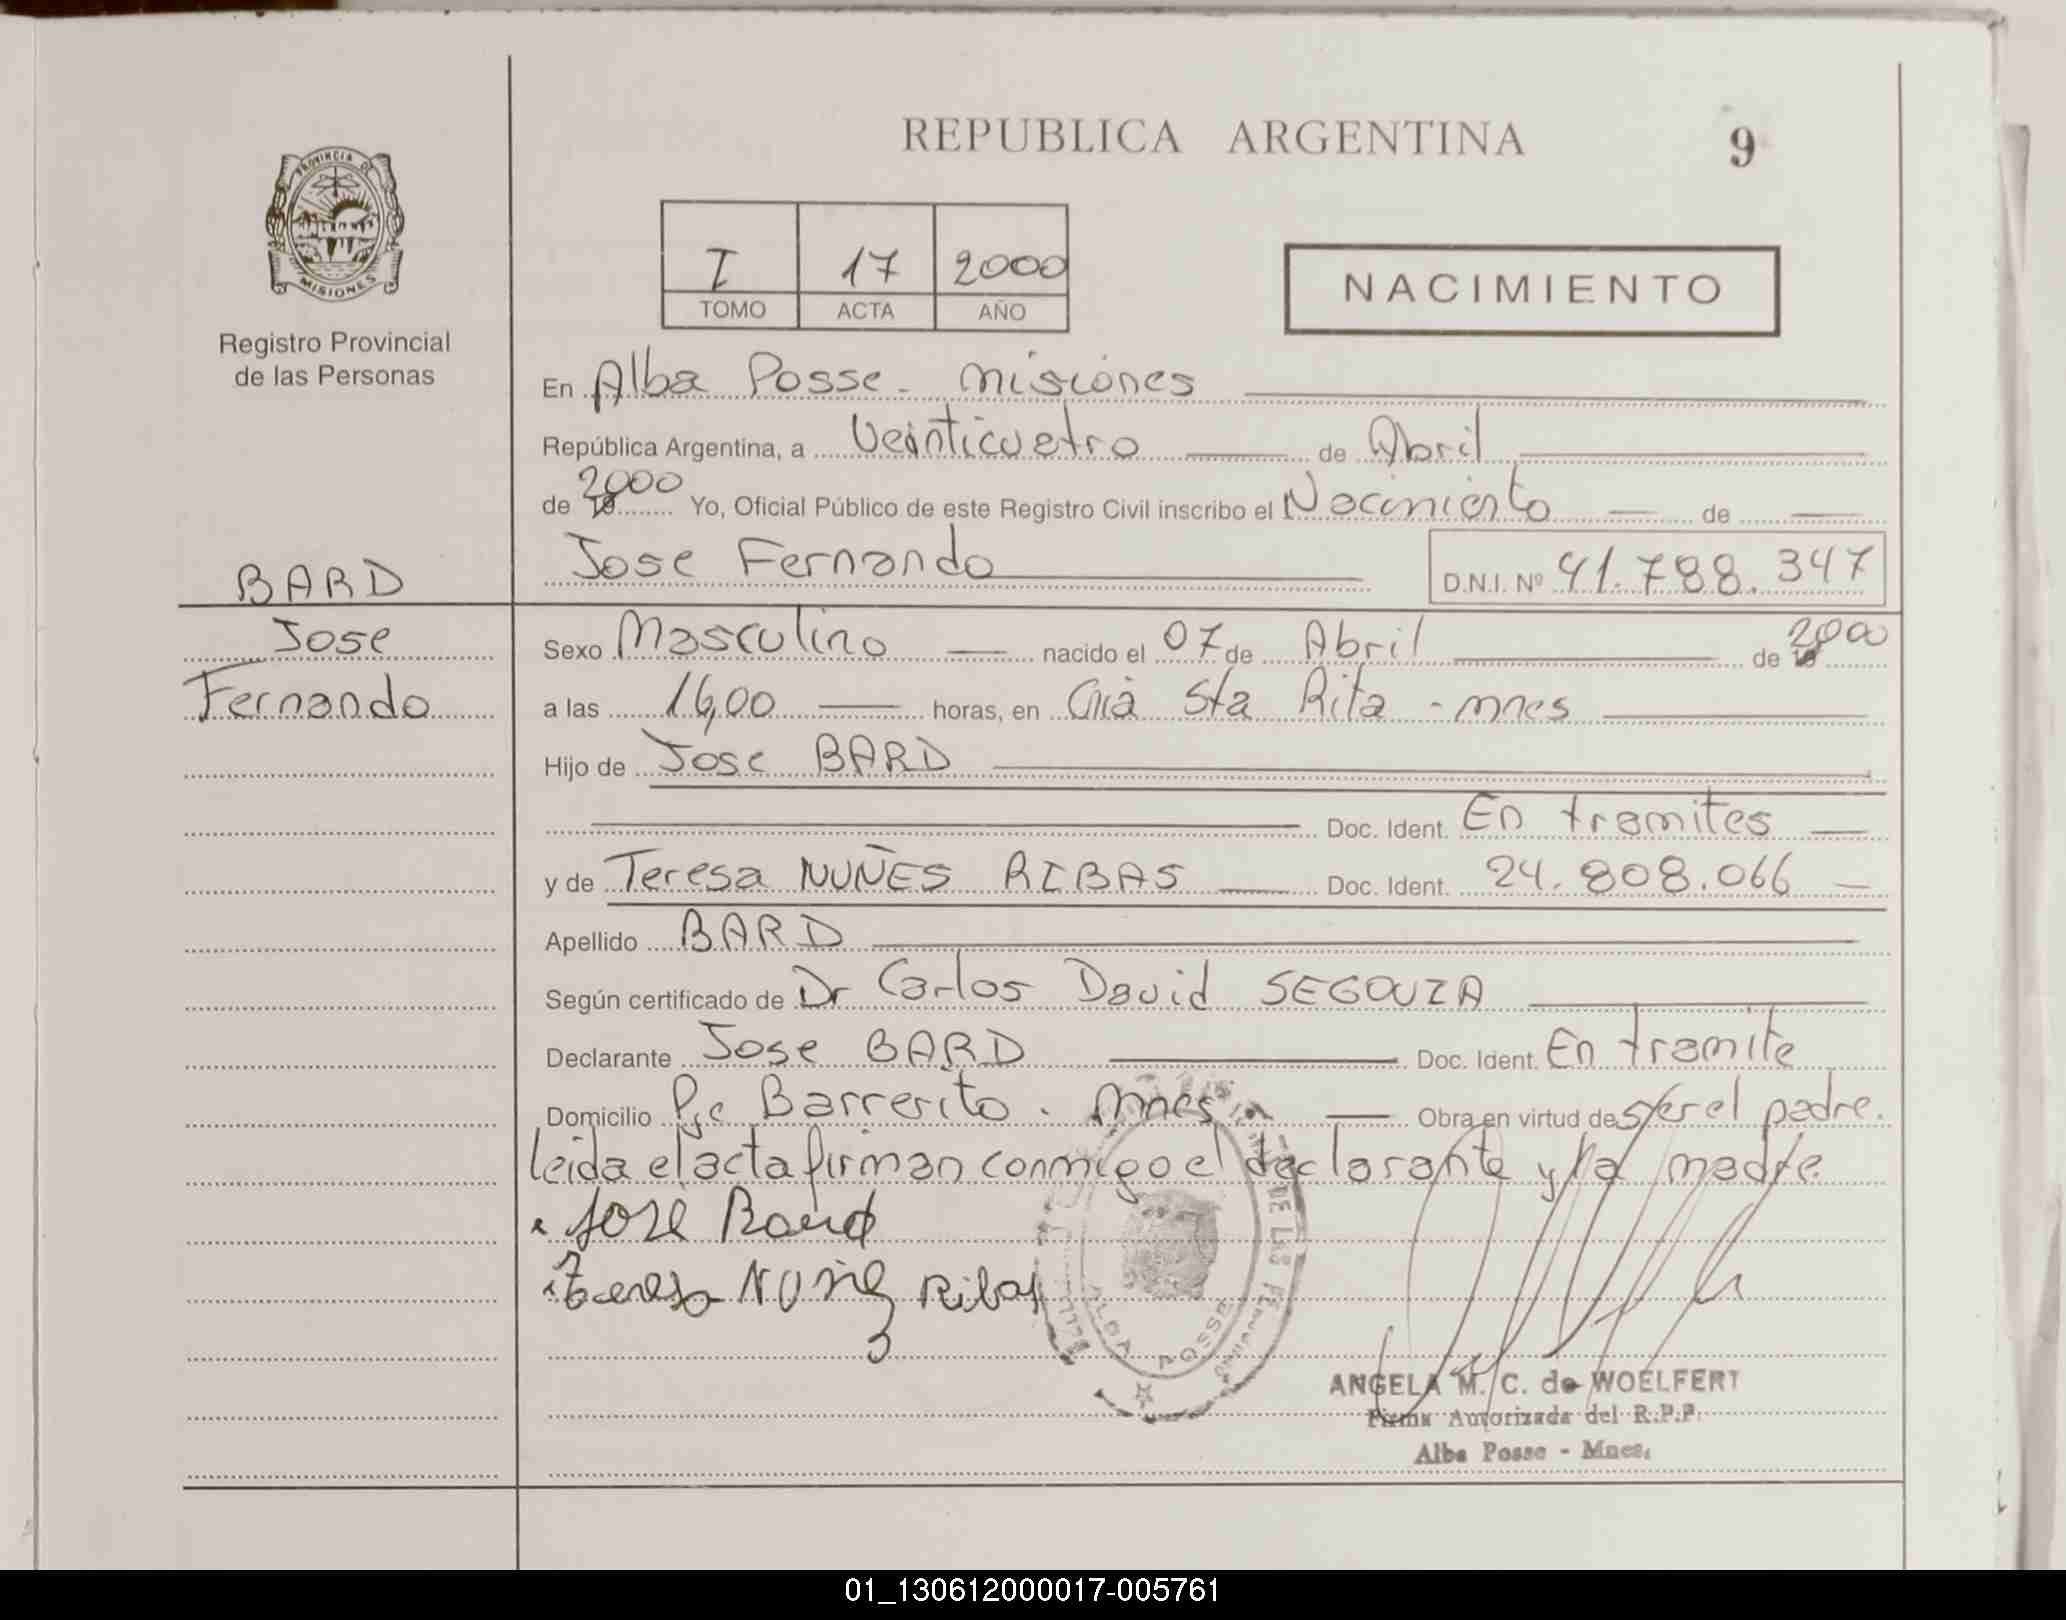 REPUBLICA ARGENTINA
9
PROVINCIA DE
MISIONES
Registro Provincial
de las Personas
I 17 2000
TOMO ACTA AÑO
NACIMIENTO
En Alba Posse - Misiones
República Argentina, a Veinticuatro de Abril
de 2000 Yo, Oficial Público de este Registro Civil inscribo el Nacimiento de
BARD
Jose Fernando D.N.I. Nº 41.788.347
Jose
Fernando
Sexo Masculino nacido el 07 de Abril de 2000
a las 16,00 horas, en Sta Rita - mnes
Hijo de Jose BARD
Doc. Ident. En tramites
y de Teresa NUÑES RIBAS Doc. Ident. 24.808.066
Apellido BARD
Según certificado de Dr Carlos David SEGOUIA
Declarante Jose BARD Doc. Ident. En tramite
Domicilio Pje Barrerito. Mnes Obra en virtud de ser el padre.
Leida el acta firman conmigo el declarante y la madre
Jose Bard
Teresa Nuñez Ribas
DE LAS PE
ALBA POSSE
ANGELA M. C. de WOELFERT
Firma Autorizada del R.P.P.
Alba Posse - Mnes.
01_130612000017-005761